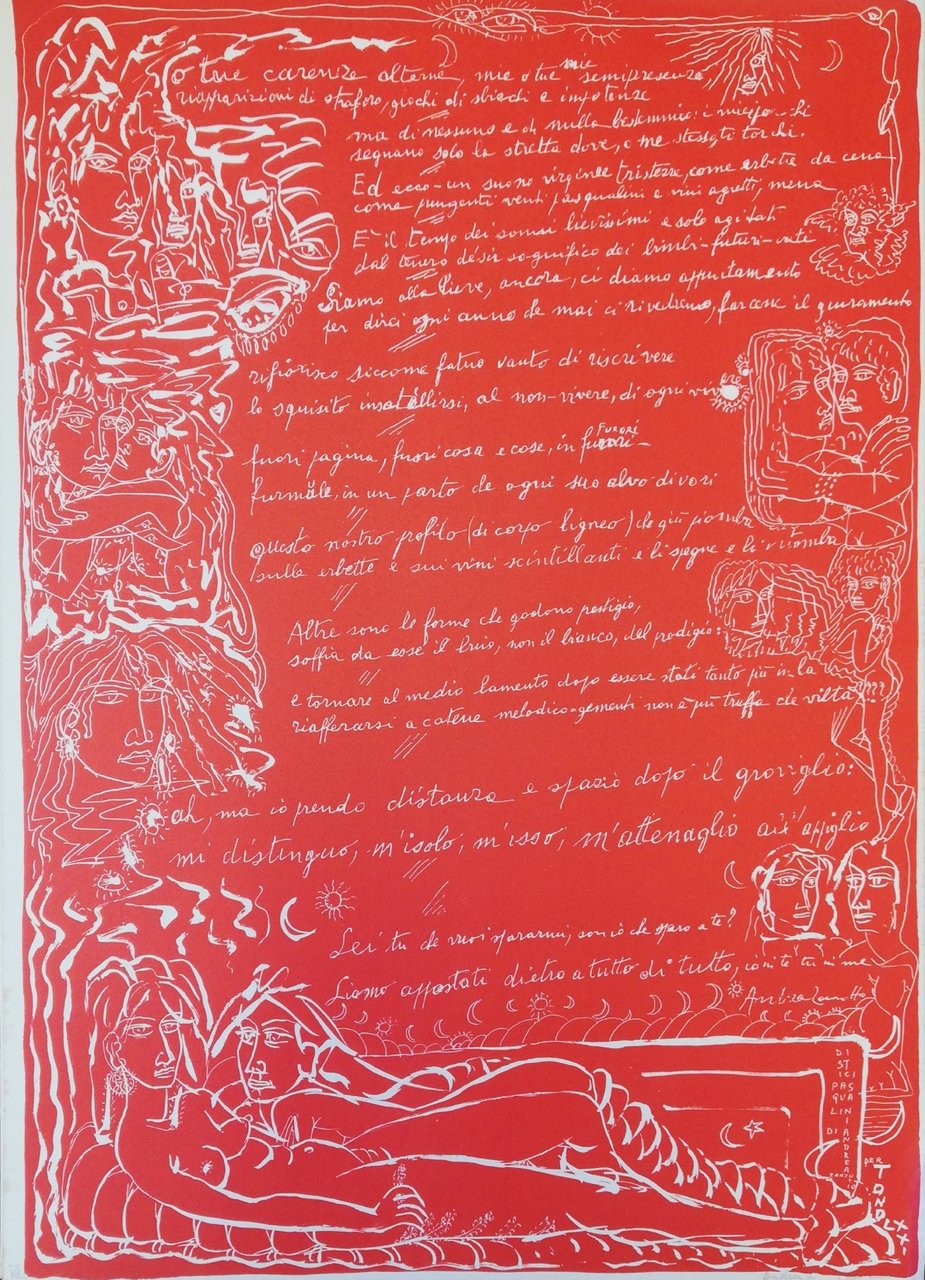 o tue carenze alterne, mie o tue mie semipresenze,
riapparizioni di straforo, giochi di sbiechi e impotenze
ma di nessuno e di nulla bestemmio: i miei
segnano solo la stretta dove, o me stesso, ti torchi.
Ed ecco-un suono virginee tristezze, come erbette da cena
come pungenti venti pasqualini e vini agretti, mena
E' il tempo dei sonni lievissimi e solo agitati
dal tenero désir sognifico dei bimbi-futuri-nati
Siamo alla Pieve, ancora, ci diamo appuntamento
per dirci ogni anno che mai ci rivedremo, farcene il giuramento
rifiorisco siccome fatuo vanto di riscrivere
lo squisito insatellirsi, al non-vivere, di ogni vivere
fuori pagina, fuori cosa e cose, in fuori FUORI-
furmäle, in un parto che ogni suo alvo divori
questo nostro profilo (di corpo ligneo) che giù piomba
sulle erbette e sui vini scintillanti e li spegne e li ritomba
Altre sono le forme che godono prestigio,
soffia da esse il buio, non il bianco, del prodigio:
e tornare al medio lamento dopo essere stati tanto più in là
riafferrarsi a catene melodico-gementi non è più truffa che viltà???
ah, ma io prendo distanza e spazio dopo il groviglio:
mi distinguo, m'isolo, m'isso, m'attenaglio all'appiglio
Sei tu che vuoi spararmi, son io che sparo a te?
Siamo appostati dietro a tutto di tutto, io in te tu in me
Andrea Zanzotto
DISTICI PASQUALINI DI ANDREA ZANZOTTO
PER TONO
LXXI